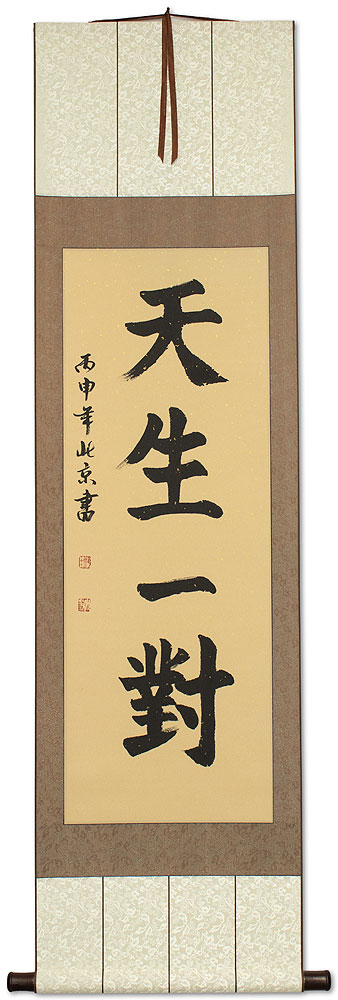 天生一對
丙申年北京書